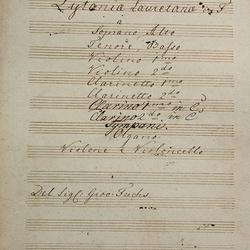 Lytania Lauretana in F
à
Soprano, Alto
Tenore, Basso
Violino 1mo
Violino 2do
Clarinetto 1mo
Clarinetto 2do
Clarino 1mo in C
Clarino 2do in C
Tympani
Organo
Violone e Violoncello
Del Sigl: Giov: Fuchs